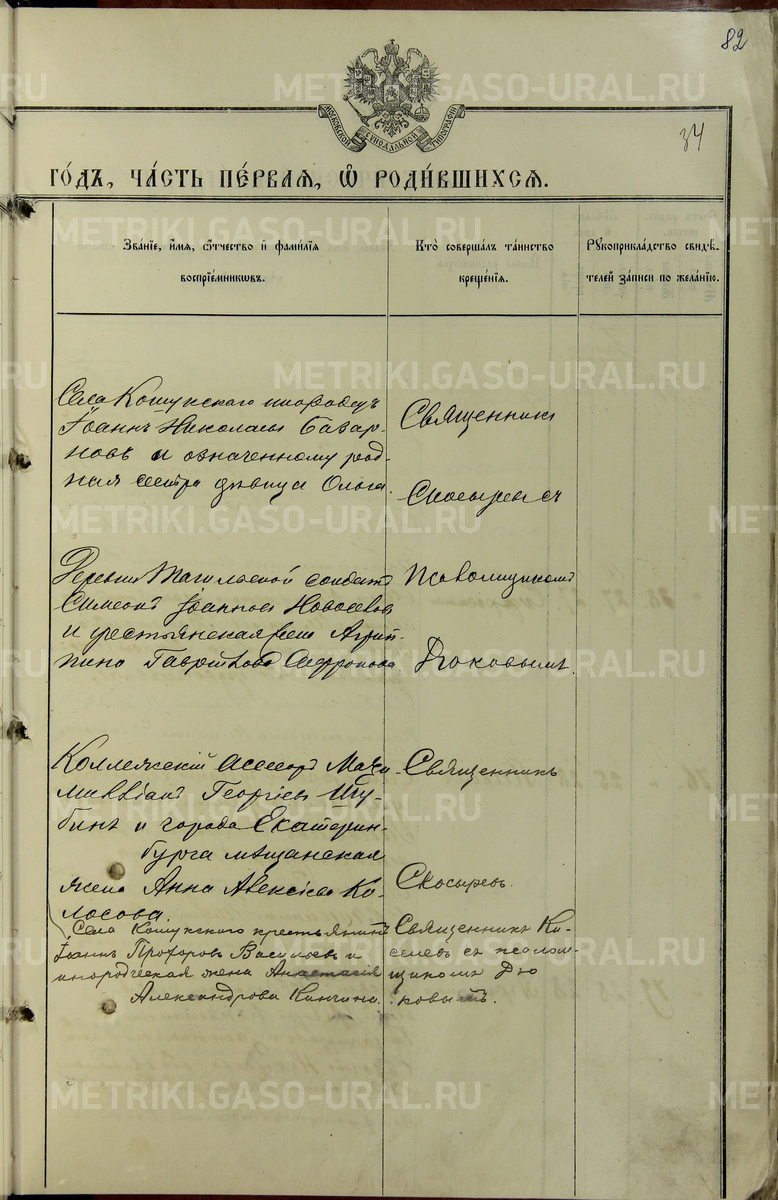 82
МОСКОВСКОЙ СѴНОДАЛЬНОЙ ТИПОГРАФІИ
34
ГО́ДЪ, ЧА́СТЬ ПЕ́РВАЯ, Ѽ РОДИ́ВШИХСЯ.
Зва́нїе, и́мя, ѻ҆́тчество и҆ фами́лїя
воспрїе́мникѡвъ.
Кто̀ соверша́лъ та́инство
креще́нїѧ.
Рꙋкоприкла́дство свидѣ́-
телей за́писи по жела́нїю.
Села Кошукскаго инородецъ
Іоаннъ Николаевъ Базар-
новъ и означенному род-
ная сестра девица Ольга.
Священникъ
Скосыревъ съ
Деревни Тагильской солдатъ
Симеонъ Іоанновъ Новоселовъ
и крестьянская жена Агрип-
пина Гаврілова Сафронова.
псаломщикомъ
Дюковымъ.
Коллежскій Асессоръ Макси-
миліанъ Георгіевъ Шу-
бинъ и города Екатерин-
бурга мѣщанская
жена Анна Алексіева Ко-
лосова.
Священникъ
Скосыревъ.
Села Кошукскаго крестьянинъ
Іоаннъ Прохоровъ Васильевъ и
инородческая жена Анастасія
Александрова Кинчина.
Священникъ Ки-
селевъ съ псалом-
щикомъ Дю-
ковымъ.
METRIKI.GASO-URAL.RU